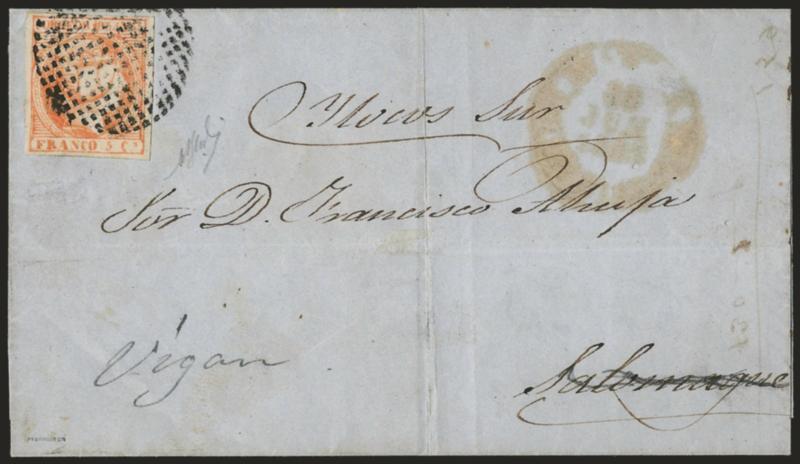 FRANCO 5 Cs
Ylocos Sur
Sor. D. Francisco Ahuja
Vigan
Salomague